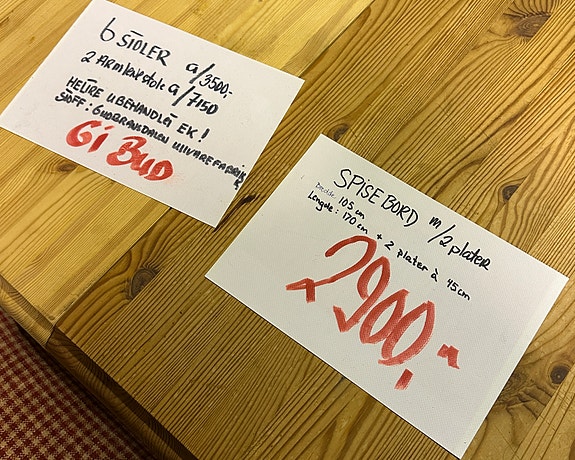 6 STOLER a/3500,-
2 Armlenkstole a/7150
HELTRE UBEHANDLA EK!
STOFF: GUDBRANSDALEN ULLVAREFABRIK
GI BUD
SPISEBORD m/2 plater
Bredde 105 cm
Lengde: 170 cm + 2 plater à 45 cm
2900,-